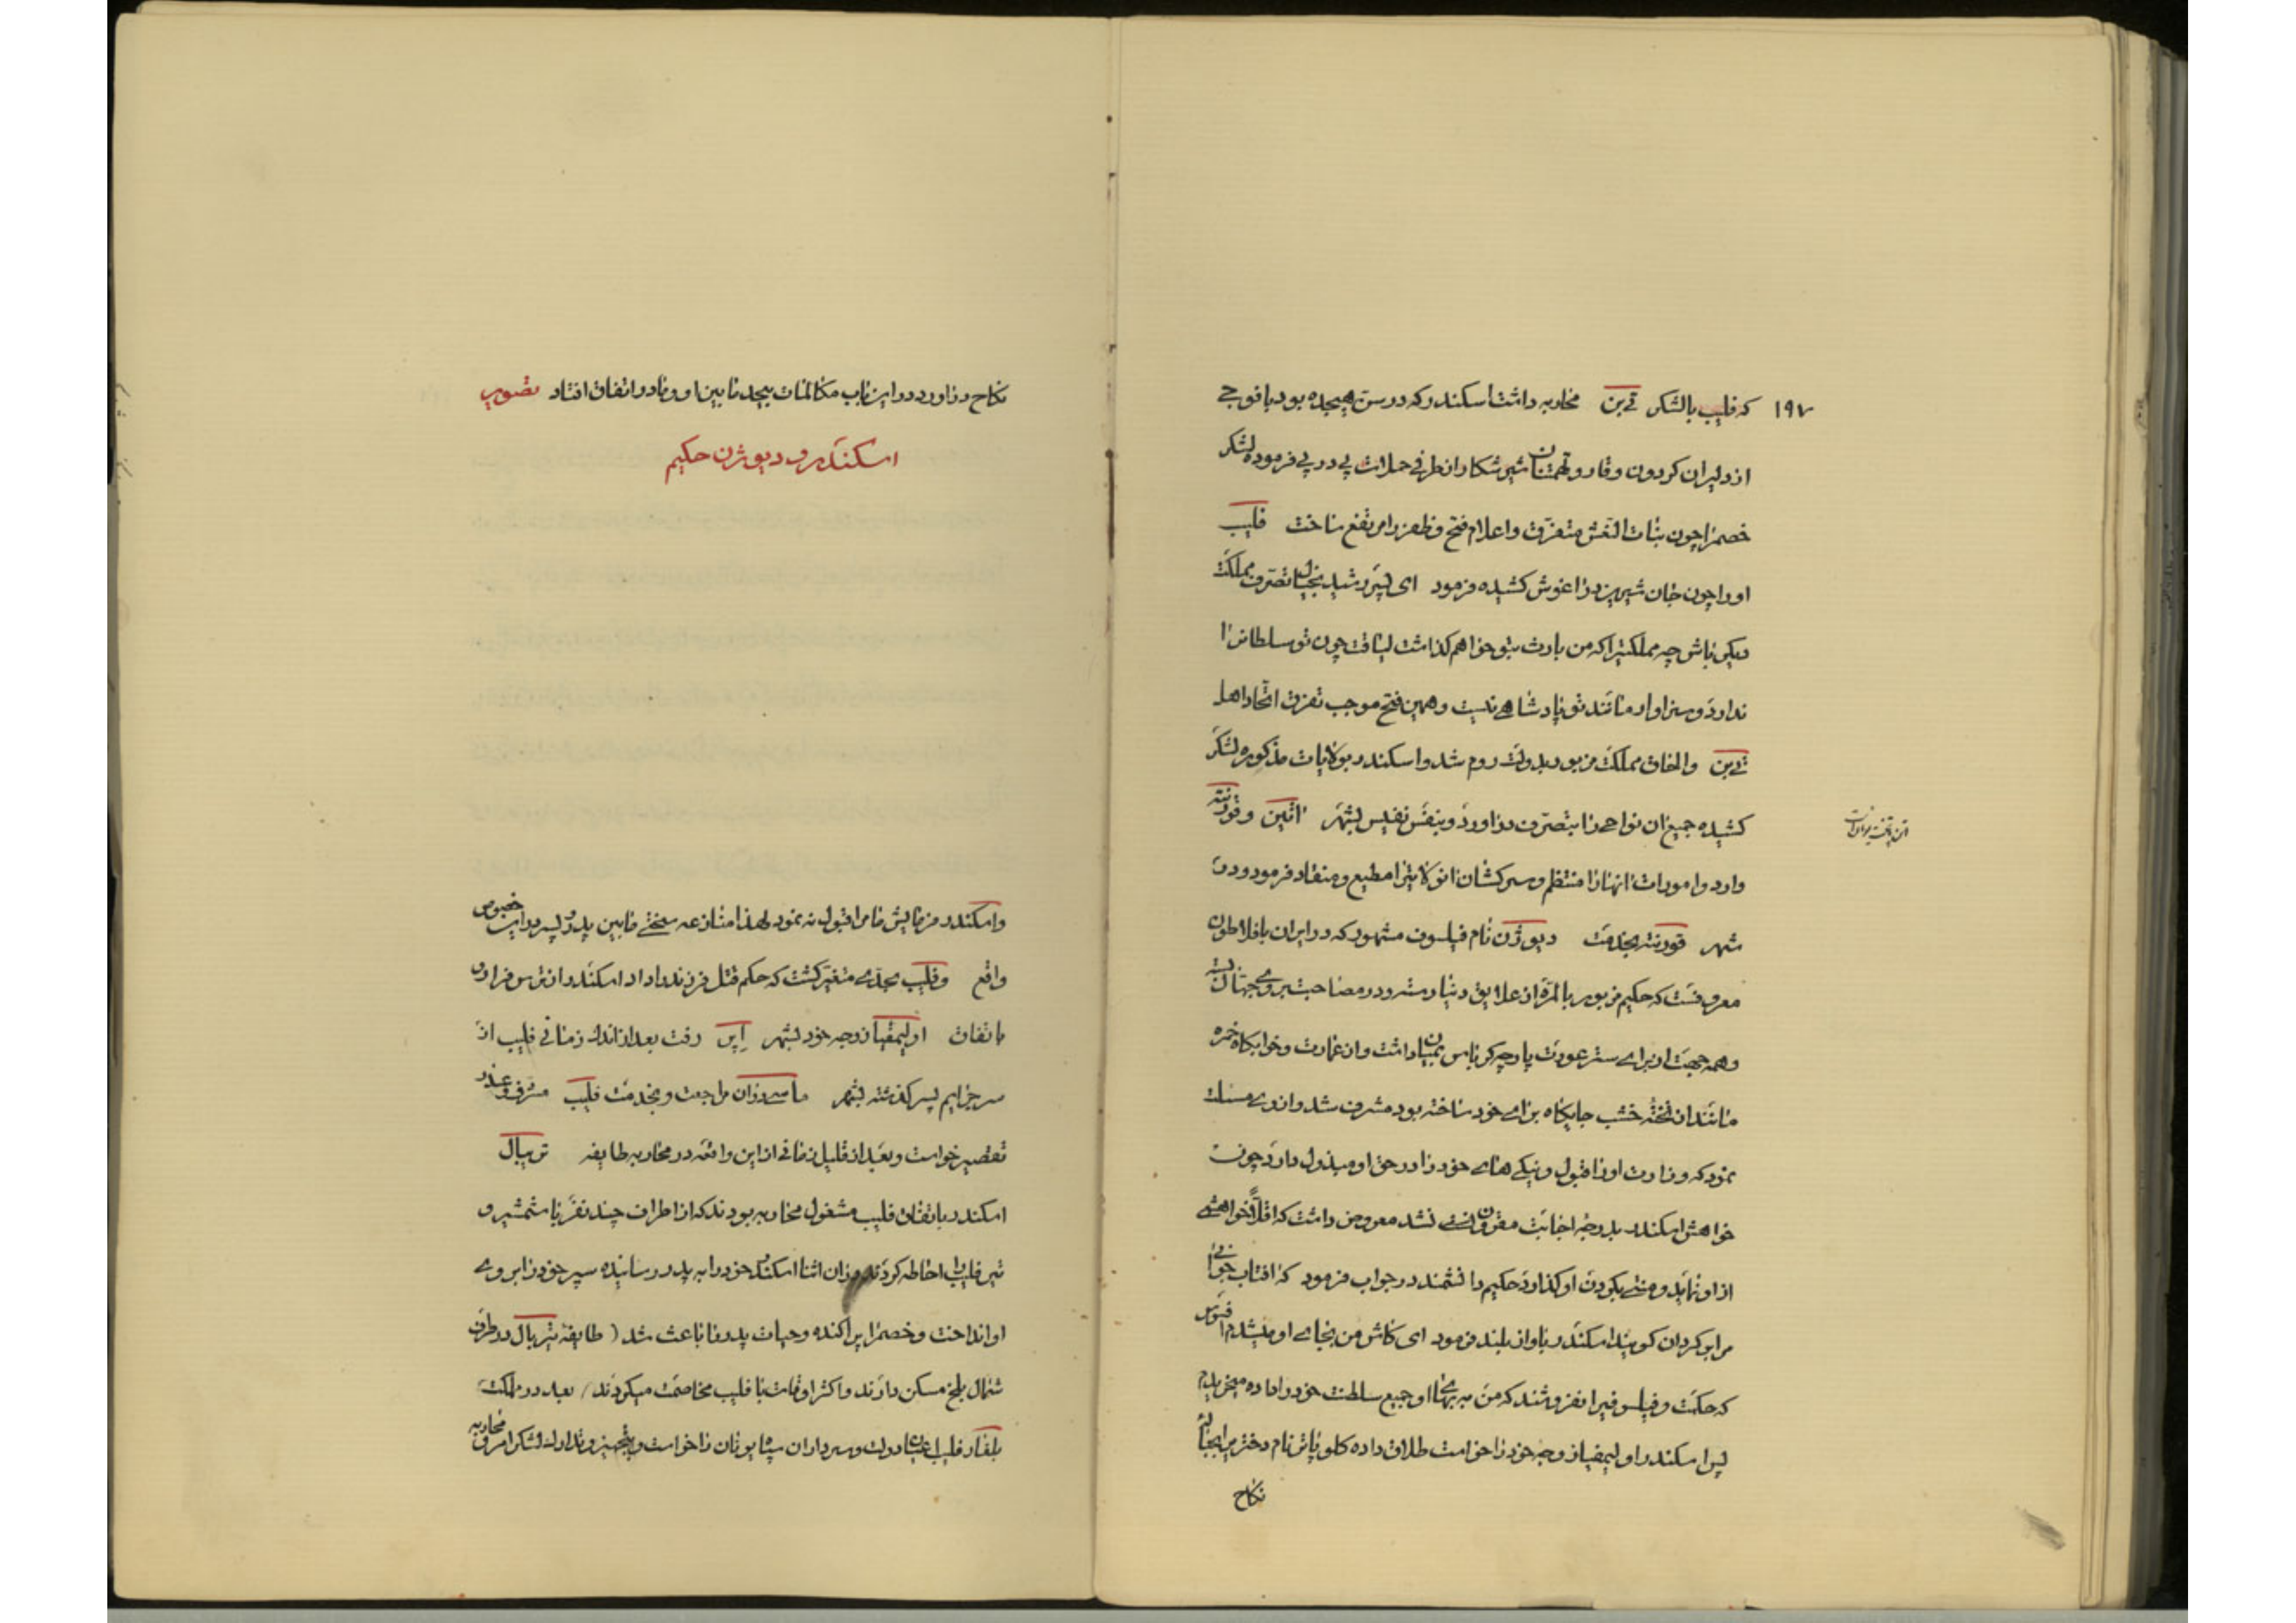 ۱۹۷ که فلیپ با لشکر تےبن محاربه داشت اسکندر که در سن هیجده بود با فوجے
از دلیران کردون وقار و تهمتنان شیر شکار از طرفی حملات پی در پی فرموده لشکر
خصم را چون بنات النعش متفرق و اعلام فتح و ظفر را مرتفع ساخت فلیپ
او را چون جان شیرین در اغوش کشیده فرمود ای پسر رشید بخیال تصرف مملکت
دیکر باش چه مملکتیرا که من بارث بتو خواهم کذاشت لیاقت چون تو سلطانرا
ندارد و سزاوار مانند تو پادشاهے نیست و همین فتح موجب تفرق اتحاد اهل
تےبن و الحاق مملکت مزبور بدولت روم شد و اسکندر بولایات مذکوره لشکر
کشیده جمیع ان نواحے را بتصرف دراورد و بنفس نفیس بشهر اتین و قورنته
وارد و امورات انها را منتظم و سرکشان انولایترا مطیع و منقاد فرمود و در
شهر قورنته بخدمت دیوژن نام فیلسوف مشهور که در ایران بافلاطون
معروفست که حکیم مزبور بالمره از علایق دنیا
و همه جهت از برای ستر عورت پارچه کرباس بمیان داشت و از عمارت و خوابکاه خمره
مانند از تخته خشب جایکاه برای خود ساخته بود مشرف شد و از وے مسئلت
نمود که وزارت او را قبول و نیکے هاے خود را در حق او مبذول دارد چون
خواهش اسکندر بدرجه اجابت مقرون نشد معروض داشت که اقلاً خواهشے
از او نماید و منتے بکردن او کذارد حکیم دانشمند در جواب فرمود که افتاب
مرا بر کردان کویند اسکندر باواز بلند فرمود ای کاش من بجاے او میشدم افسوس
که حکمت و فیلسوفیرا نفروشند که من به بهاے او جمیع سلطنت خود را داده میخریدم
پس اسکندر اولیمفیا زوجه خود را خواست طلاق داده کلوپاتر نام دختر
نکاح
نکاح دراورد در این باب مکالمات بیحد مابین او و مادر اتفاق افتاد تصویر
اسکندر و دیوژن حکیم
و اسکندر فرمایش مامرا قبول نه نمود لهذا منازعه سختے مابین پدر و پسر در این خصوص
واقع و فلیپ بحدے متغیر کشت که حکم قتل فرزند را داد اسکندر از ترس فرار و
باتفاق اولیمفیا زوجه خود بشهر اپر رفت بعد از اندک زمانی فلیپ از
سر جرایم پسر کذشته بشهر ماسدوان مراجعت و بخدمت فلیپ مشرف و عذر
تقصیر خواست و بعد از قلیل زمانی از این واقعه در محاربه طایفه تریبال
اسکندر باتفاق فلیپ مشغول محاربه بودند که از اطراف چند نفر با شمشیر و
تیر فلیپ را احاطه کردند در ان اثنا اسکندر خود را به پدر رسانیده سپر خود را بروے
او انداخت و خصم را پراکنده و حیات پدر را باعث شد ( طایفه تریبال در طرف
شمال بلخ مسکن دارند و اکثر اوقات با فلیپ مخاصمت میکردند ) بعد در مملکت
بلغار فلیپ اعیان دولت و سرداران سپاه یونان را خواست و بتجهیز و تدارک لشکر امر و محاربه